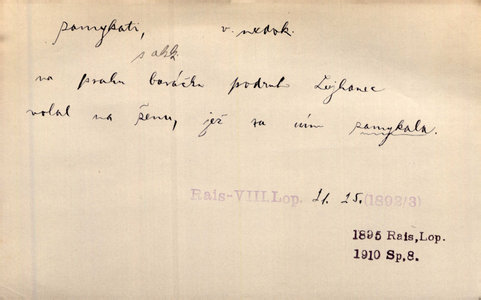 zamykati, v. nedok.
s akk.
na prahu baráčku podruh Lejhanec
volal na ženu, jež za ním zamykala.
Rais-VIII.Lop. 21. 25. (1892/3)
1895 Rais,Lop.
1910 Sp,8.